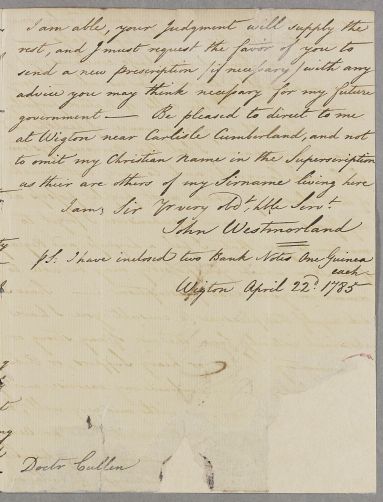 I am able, your Judgment will supply the
rest, and I must request the favor of you to
send a new prescription /if necessary/ with any
advice you may think necessary for my future
government — Be pleased to direct to me
at Wigton near Carlisle Cumberland, and not
to omit my Christian Name in the Superscription
as their are others of my Sirname living here
I am, Sir Yr very obdt. Hble Servt.
John Westmorland
P.S. I have inclosed two Bank Notes One Guinea
each
Wigton April 22d. 1785
Doctr Cullen